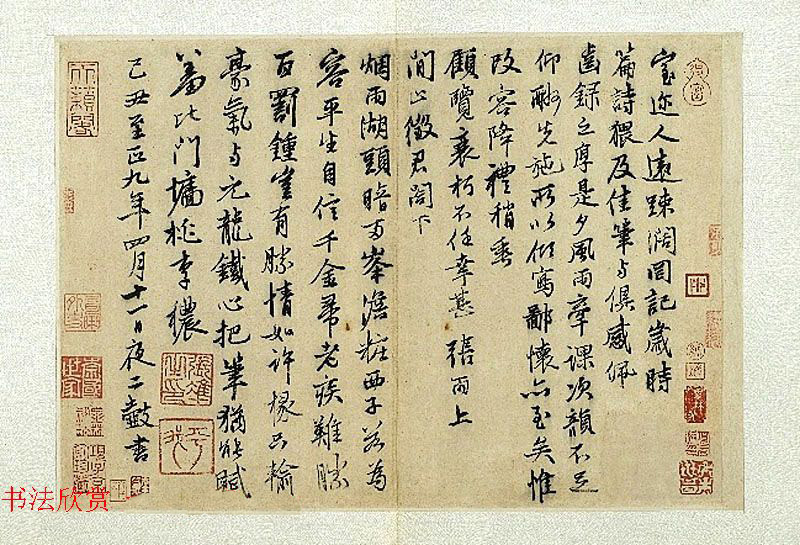 室迩人遠踈濶罔記歲時
篇詩猥及佳筆与俱感佩
齒錄之厚是夕風雨率課次韻不足
仰酬先施所以傾寫鄙懷亦至矣惟
改容降禮稍垂
顧覽衰朽不任幸甚 張雨上
閒止徵君閣下
烟雨湖頭暗万峯澹粧西子若為
容平生自信千金帚老疾難勝
百罰鍾豈有勝情如許椽只輸
豪氣与元龍鐵心把筆猶能賦
羞比門墻桃李穠
己丑至正九年四月十一日夜二鼓書
书法欣赏